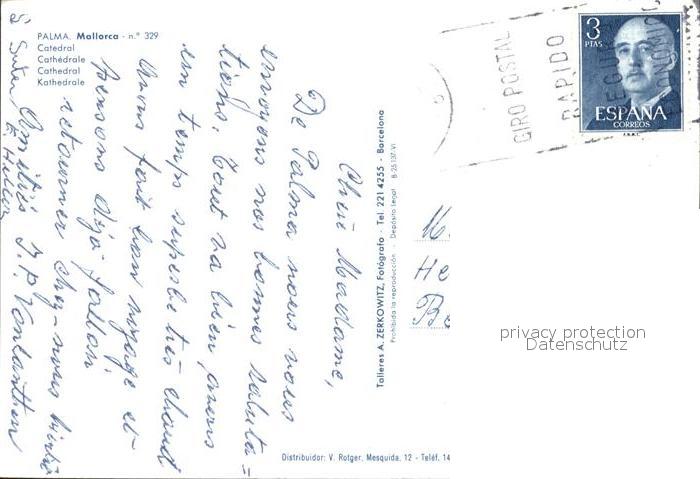 PALMA. Mallorca - n.º 329
Catedral
Cathédrale
Cathedral
Kathedrale
Chère Madame,
De Palma nous vous
envoyons nos bonnes saluta=
tions. Tout va bien, avons
un temps superbe très chaud
Avons fait bon voyage et
pensons déjà
retourner chez-nous
Amitiés J. P. Vonlanthen
Talleres A. ZERKOWITZ, Fotógrafo - Tel. 221 4255 - Barcelona
Prohibida la reproducción - Depósito Legal B-26.137-VI
Distribuidor: V. Rotger. Mesquida, 12 - Teléf. 14
3
PTAS
ESPAÑA
CORREOS
F.N.M.T.
GIRO POSTAL
RAPIDO
SEGURO
ECONOMICO
M.
He
Be
privacy protection
Datenschutz